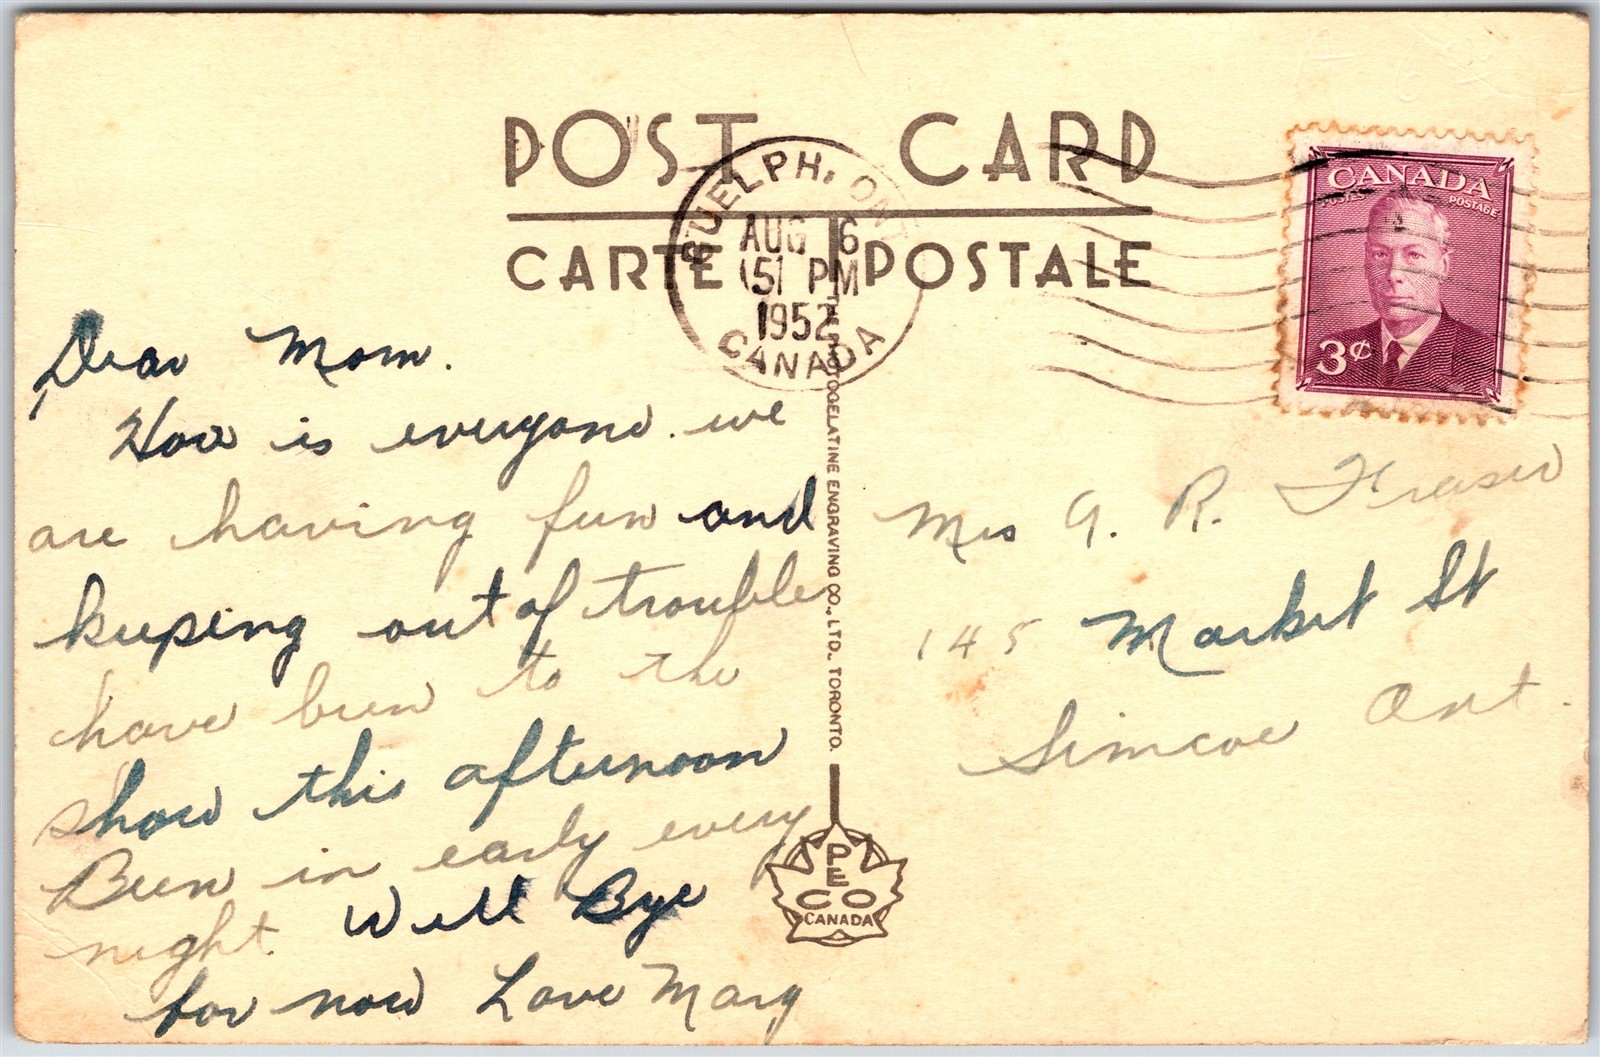 POST CARD
CARTE POSTALE
GUELPH, ONT
AUG 6
51 PM
1952
CANADA
CANADA
POSTES POSTAGE
3¢
Dear Mom.
How is everyone. we
are having fun and
keeping out of trouble
have been to the
show this afternoon
Been in early every
night. Well Bye
for now Love Mary
PHOTOGELATINE ENGRAVING CO., LTD., TORONTO.
PECO
CANADA
Mrs G. R. Fraser
145 Market St
Simcoe Ont.